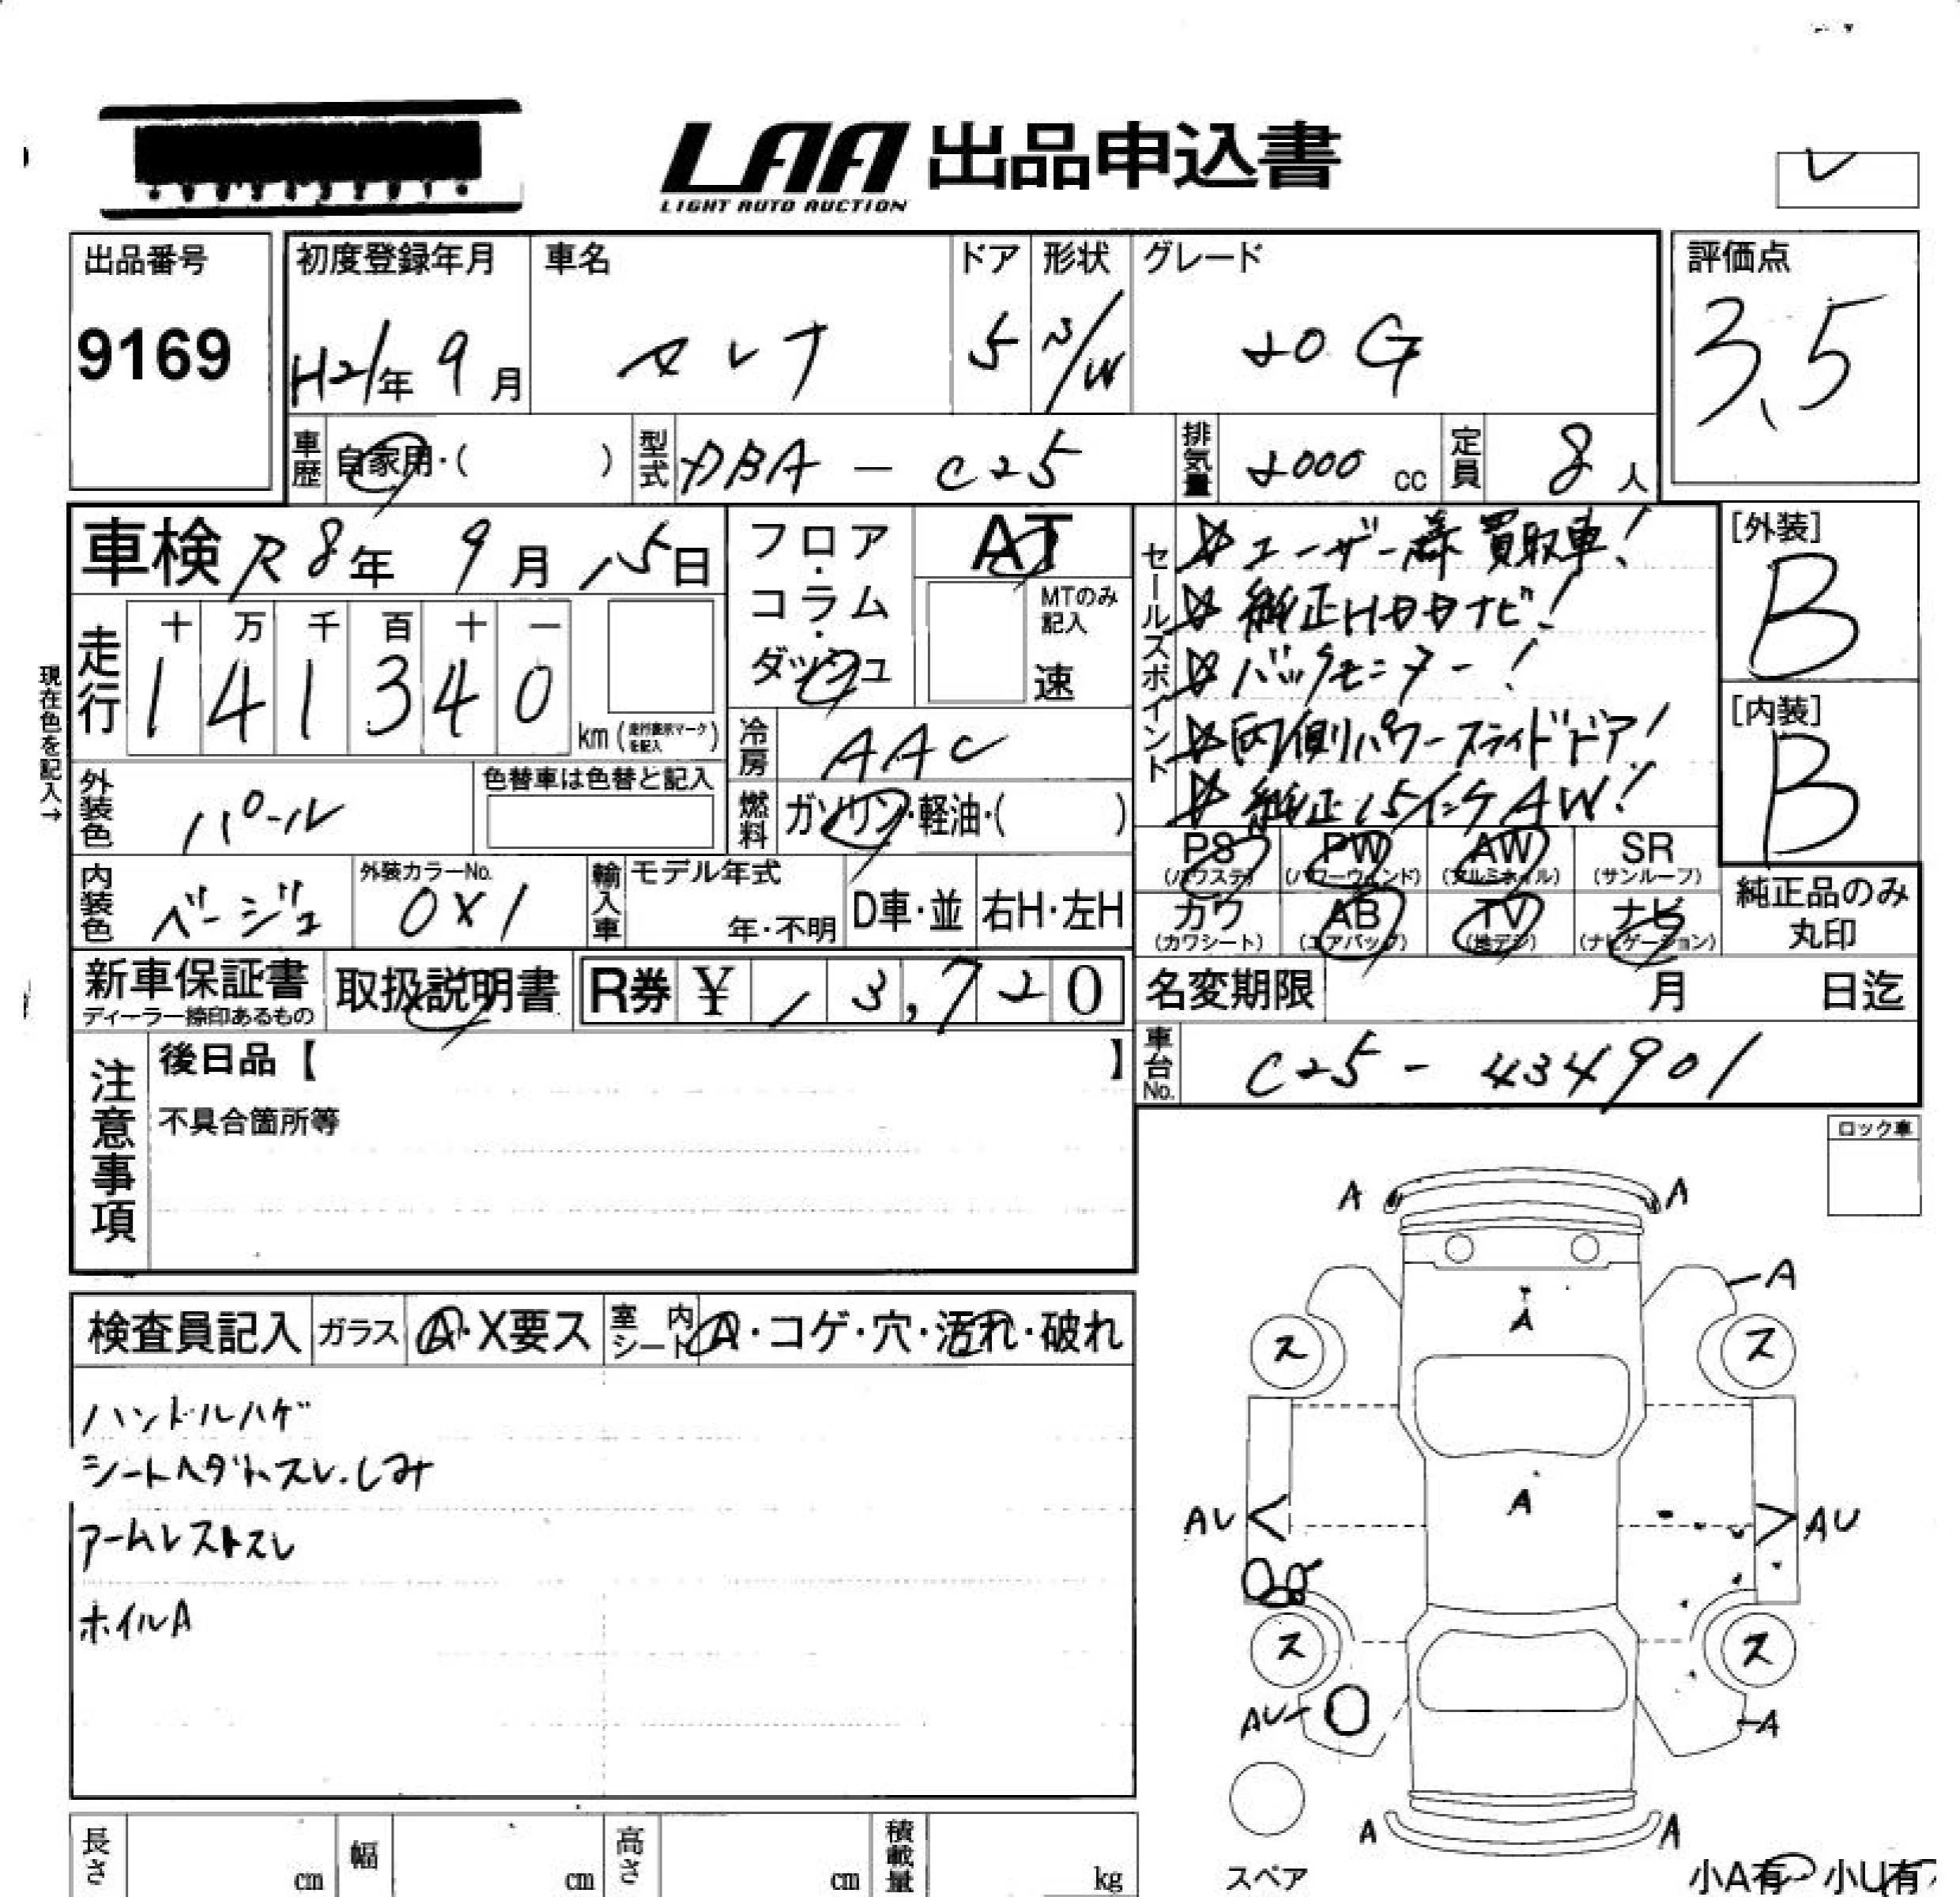 LAA 出品申込書
LIGHT AUTO AUCTION
出品番号
9169
初度登録年月
H21年 9月
車名
セレナ
ドア
5
形状
S/W
グレード
20G
評価点
3.5
車歴 自家用・( )
型式 DBA-C25
排気量 2000 cc
定員 8人
車検 R8年 9月 15日
フロア・コラム・ダッシュ
AT
MTのみ記入
速
現在色を記入→
走行
十 万 千 百 十 一
1 4 1 3 4 0
km (走行表示マークを記入)
冷房 AAC
燃料 ガソリン・軽油・( )
外装色 パール
色替車は色替と記入
内装色 ベージュ
外装カラーNo.
0X1
輸入車 モデル年式
年・不明
D車・並 右H・左H
セールスポイント
☆ユーザー様買取車!
☆純正HDDナビ!
☆バックモニター!
☆両側パワースライドドア!
☆純正15インチAW!
[外装]
B
[内装]
B
PS (パワステ)
PW (パワーウィンド)
AW (アルミホイル)
SR (サンルーフ)
カワ (カワシート)
AB (エアバッグ)
TV (地デジ)
ナビ (ナビゲーション)
純正品のみ
丸印
新車保証書
ディーラー捺印あるもの
取扱説明書
R券 ¥ 13,720
名変期限 月 日迄
車台No. C25-434901
注意事項
後日品【 】
不具合箇所等
ロック車
検査員記入 ガラス A・X要ス 室内シート A・コゲ・穴・汚れ・破れ
ハンドルハゲ
シートヘタレ、スレ、しみ
アームレストスレ
ホイルA
A A
A
A
ス ス
A
AU AU
ス ス
AU A
A A
スペア
小A有 小U有
長さ cm 幅 cm 高さ cm 積載量 kg